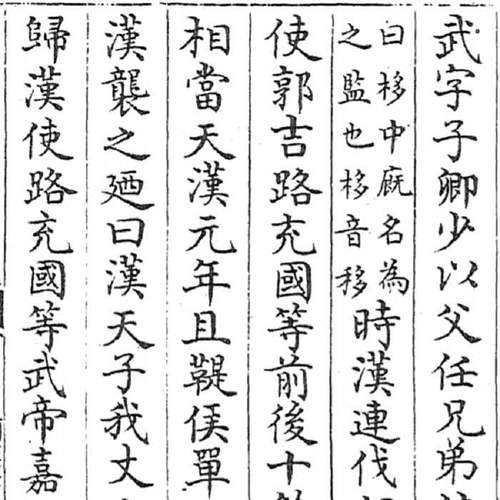 武字子卿少以父任兄弟
曰栘中廐名為
之監也栘音移
時漢連伐
使郭吉路充國等前後十
相當天漢元年且鞮侯單
漢襲之廼曰漢天子我丈
歸漢使路充國等武帝嘉